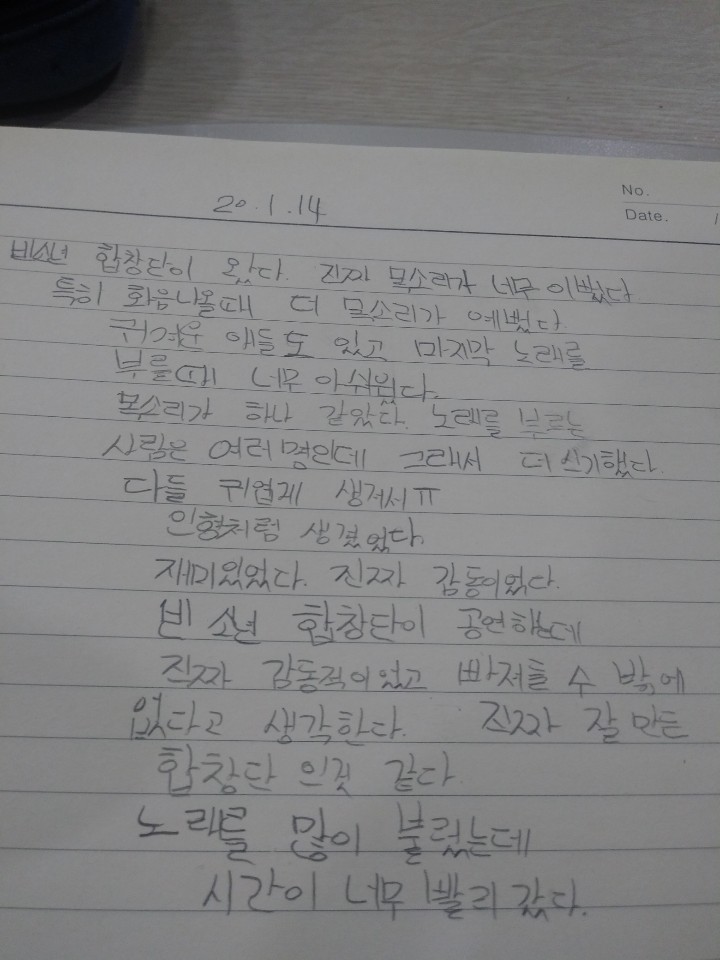 No.
Date. 1
20.1.14
빈소년 합창단이 왔다. 진짜 목소리가 너무 이뻤다
특히 화음나올때 더 목소리가 예뻤다.
귀여운 애들도 있고 마지막 노래를
부를때 너무 아쉬웠다.
목소리가 하나 같았다. 노래를 부르는
사람은 여러명인데 그래서 더 신기했다.
다들 귀엽게 생겨서ㅠ
인형처럼 생겼었다.
재미있었다. 진짜 감동이었다.
빈 소년 합창단이 공연하는데
진짜 감동적이었고 빠져들 수 밖에
없다고 생각한다. 진짜 잘 만든
합창단 인것 같다
노래를 많이 불렀는데
시간이 너무 빨리 갔다.